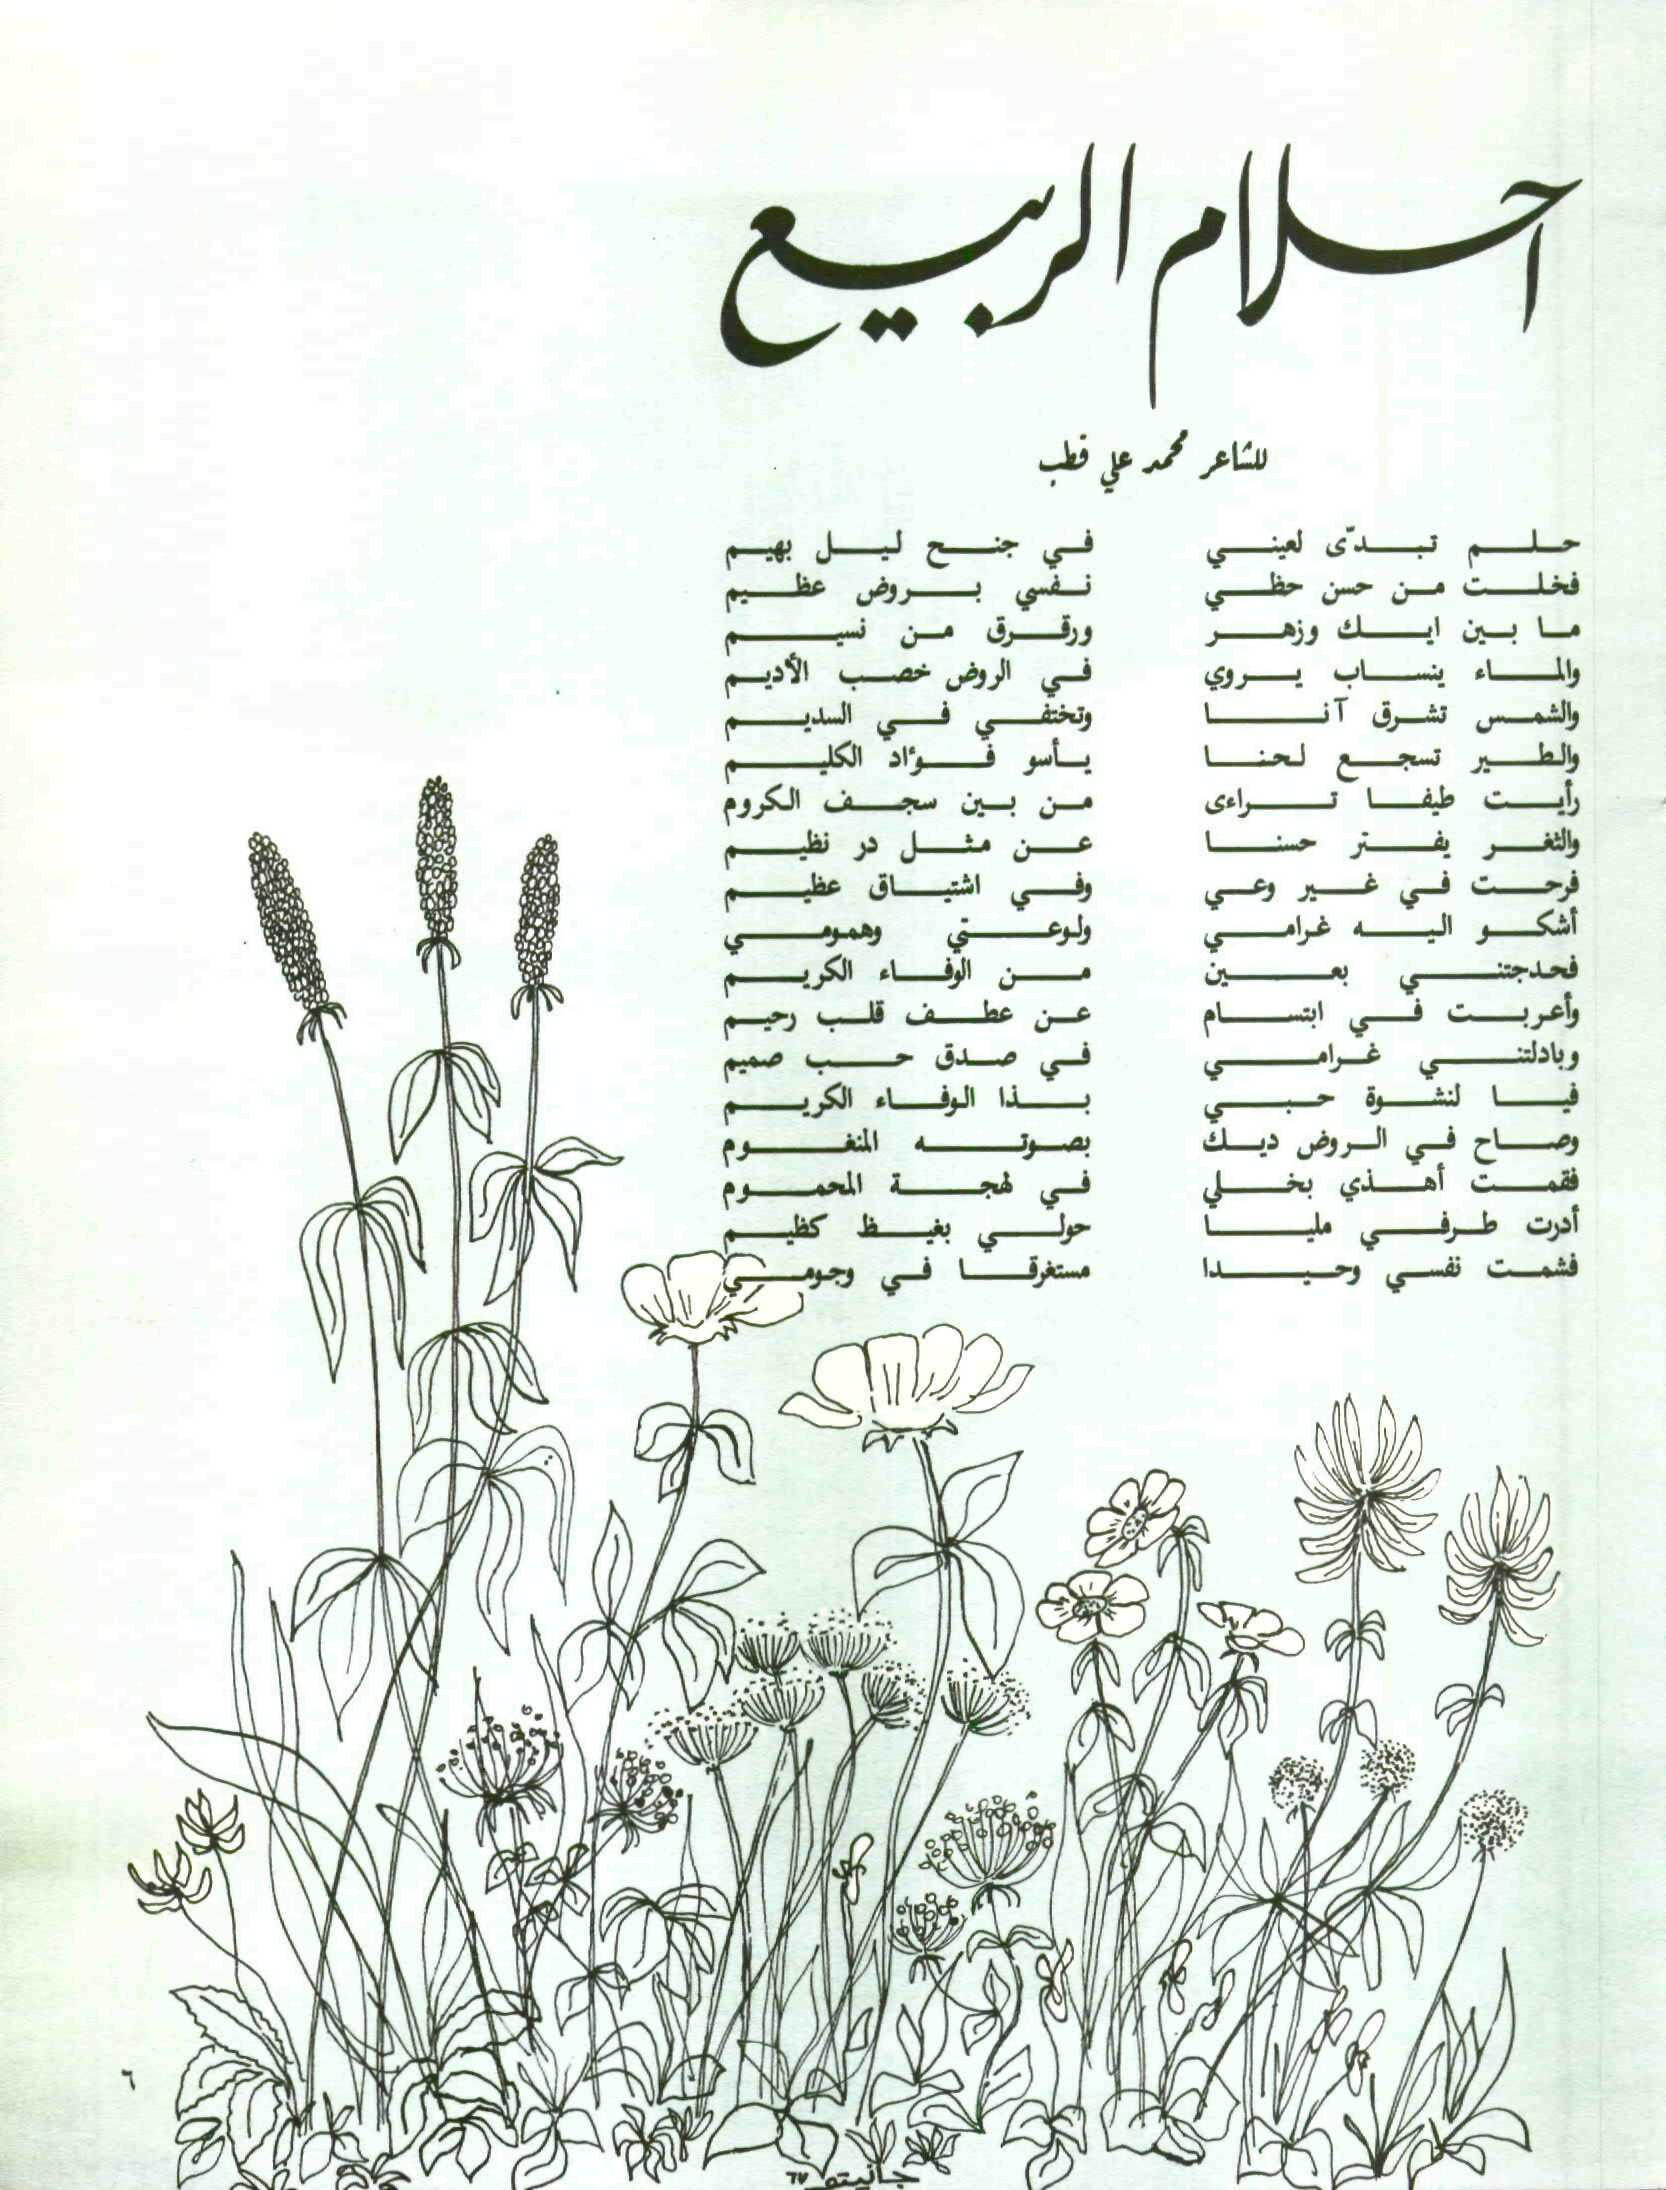 احلام الربيع
للشاعر محمد علي قطب
حلم تبدّى لعيني في جنح ليل بهيم
فخلت من حسن حظي نفسي بروض عظيم
ما بين ايك وزهر ورقرق من نسيم
والماء ينساب يروي في الروض خصب الأديم
والشمس تشرق آنا وتختفي في السديم
والطير تسجع لحنا يأسو فؤاد الكليم
رأيت طيفا تراءى من بين سجف الكروم
والثغر يفتر حسنا عن مثل در نظيم
فرحت في غير وعي وفي اشتياق عظيم
أشكو اليه غرامي ولوعتي وهمومي
فحدجتني بعين من الوفاء الكريم
وأعربت في ابتسام عن عطف قلب رحيم
وبادلتني غرامي في صدق حب صميم
فيا لنشوة حبي بذا الوفاء الكريم
وصاح في الروض ديك بصوته المنغوم
فقمت أهذي بخلي في لهجة المحموم
أدرت طرفي مليا حولي بغيظ كظيم
فشمت نفسي وحيدا مستغرقا في وجومي
٦
جانيتو ٦٧